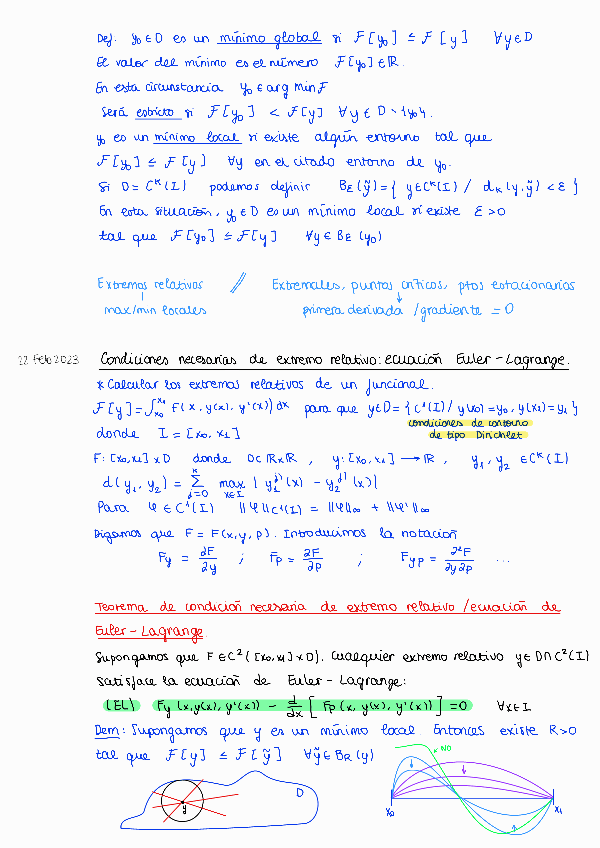 Def. y₀ ∈ D es un mínimo global si F[y₀] ≤ F[y] ∀y ∈ D
El valor del mínimo es el número F[y₀] ∈ ℝ.
En esta circunstancia y₀ ∈ arg min F
Será estricto si F[y₀] < F[y] ∀y ∈ D \ {y₀}.
y₀ es un mínimo local si existe algún entorno tal que
F[y₀] ≤ F[y] ∀y en el citado entorno de y₀.
Si D = Cᵏ(I) podemos definir B_ε(ỹ) = { y ∈ Cᵏ(I) / d_k(y, ỹ) < ε }
En esta situación, y₀ ∈ D es un mínimo local si existe ε > 0
tal que F[y₀] ≤ F[y] ∀y ∈ B_ε(y₀)
Extremos relativos // Extremales, puntos críticos, ptos estacionarios
max/min locales primera derivada / gradiente = 0
22 Feb 2023 Condiciones necesarias de extremo relativo: ecuación Euler-Lagrange.
* Calcular los extremos relativos de un funcional.
F[y] = ∫_{x₀}^{x₁} F(x, y(x), y'(x)) dx para que y ∈ D = { C¹(I) / y(x₀) = y₀, y(x₁) = y₁ }
condiciones de contorno
donde I = [x₀, x₁] de tipo Dirichlet
F: [x₀, x₁] x D donde D ⊂ ℝxℝ, y: [x₀, x₁] → ℝ, y₁, y₂ ∈ Cᵏ(I)
d(y₁, y₂) = Σ_{j=0}^{k} max_{x∈I} | y₁^{j)}(x) − y₂^{j)}(x) |
Para φ ∈ C¹(I) ||φ||_{C¹(I)} = ||φ||∞ + ||φ'||∞
Digamos que F = F(x, y, p). Introducimos la notación
F_y = ∂F/∂y ; F_p = ∂F/∂p ; F_yp = ∂²F/∂y∂p ...
Teorema de condición necesaria de extremo relativo / ecuación de
Euler-Lagrange
Supongamos que F ∈ C²([x₀, x₁] x D). Cualquier extremo relativo y ∈ D ∩ C²(I)
satisface la ecuación de Euler-Lagrange:
(EL) F_y(x, y(x), y'(x)) − d/dx [ F_p(x, y(x), y'(x)) ] = 0 ∀x ∈ I
Dem: Supongamos que y es un mínimo local. Entonces existe R > 0
tal que F[y] ≤ F[ỹ] ∀ỹ ∈ B_R(y)
NO
D
y
x₀ x₁